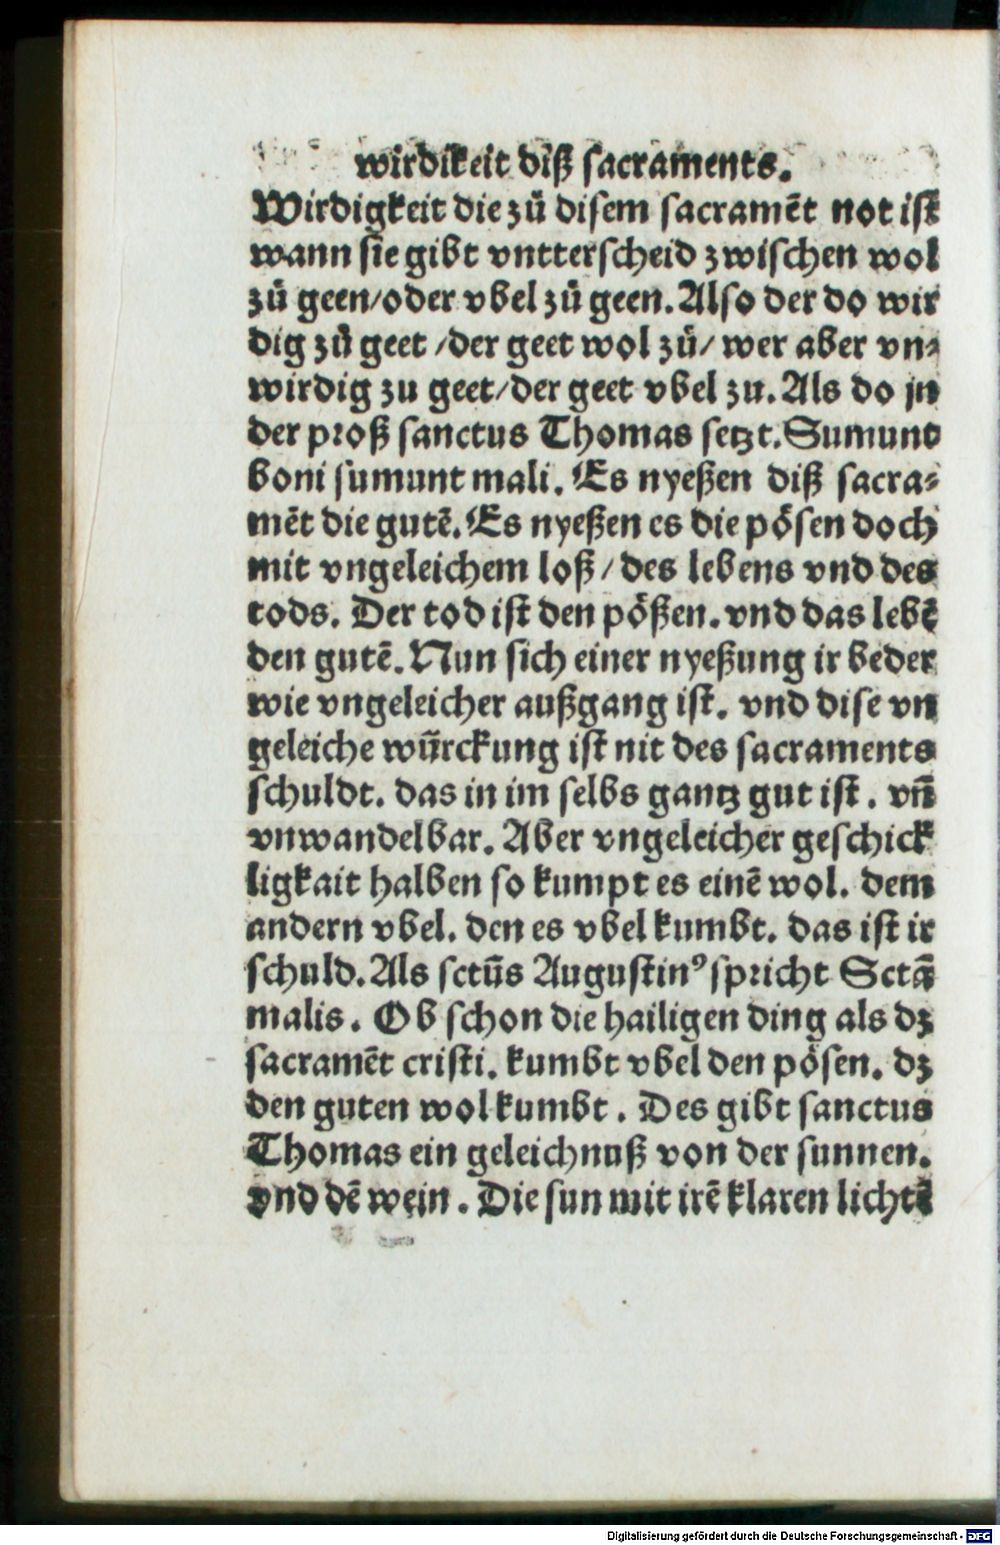 wirdikeit diß sacraments.
Wirdigkeit die zů disem sacramēt not ist
wann sie gibt vntterscheid zwischen wol
zů geen/oder vbel zů geen. Also der do wir
dig zů geet /der geet wol zů/ wer aber vn⸗
wirdig zu geet/der geet vbel zu. Als do jn
der proß sanctus Thomas setzt. Sumunt
boni sumunt mali. Es nyeßen diß sacra⸗
mēt die gutē. Es nyeßen es die pösen doch
mit vngeleichem loß / des lebens vnd des
tods. Der tod ist den pößen. vnd das lebē
den gutē. Nun sich einer nyeßung ir beder
wie vngeleicher außgang ist. vnd dise vn
geleiche würckung ist nit des sacraments
schuldt. das in im selbs gantz gut ist. vñ
vnwandelbar. Aber vngeleicher geschick
ligkait halben so kumpt es einē wol. dem
andern vbel. den es vbel kumbt. das ist ir
schuld. Als sctūs Augustinꝰ spricht Sctā
malis. Ob schon die hailigen ding als dz
sacramēt cristi. kumbt vbel den pösen. dz
den guten wol kumbt. Des gibt sanctus
Thomas ein geleichnuß von der sunnen.
vnd dē wein. Die sun mit irē klaren lichtē
Digitalisierung gefördert durch die Deutsche Forschungsgemeinschaft - DFG